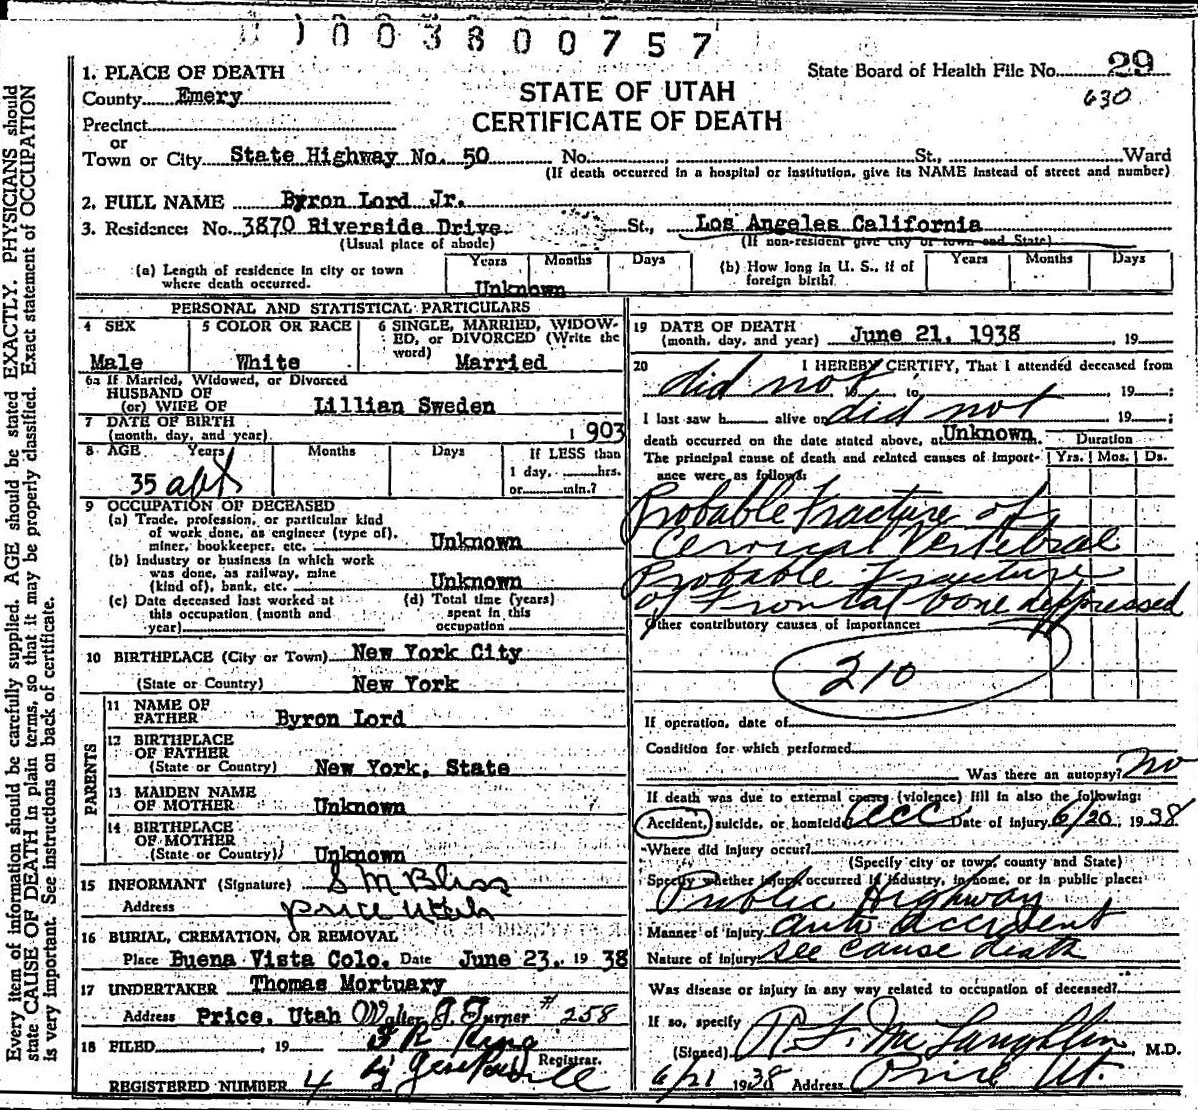 003800757
State Board of Health File No. 29
630
1. PLACE OF DEATH
County Emery
Precinct
or
Town or City State Highway No. 50 No. , St., Ward
(If death occurred in a hospital or institution, give its NAME instead of street and number)
STATE OF UTAH
CERTIFICATE OF DEATH
2. FULL NAME Byron Lord Jr.
3. Residence: No. 3870 Riverside Drive. St., Los Angeles California
(Usual place of abode) (If non-resident give city or town and State)
(a) Length of residence in city or town where death occurred. Years Months Days
Unknown
(b) How long in U. S., if of foreign birth? Years Months Days
PERSONAL AND STATISTICAL PARTICULARS
4 SEX
Male
5 COLOR OR RACE
White
6 SINGLE, MARRIED, WIDOW-
ED, or DIVORCED (Write the
word) Married
6a If Married, Widowed, or Divorced
HUSBAND OF
(or) WIFE OF Lillian Sweden
7 DATE OF BIRTH
(month, day, and year) 1903
8 AGE Years Months Days If LESS than
1 day, hrs.
or min.?
35 apt
9 OCCUPATION OF DECEASED
(a) Trade, profession, or particular kind
of work done, as engineer (type of),
miner, bookkeeper, etc. Unknown
(b) Industry or business in which work
was done, as railway, mine
(kind of), bank, etc. Unknown
(c) Date deceased last worked at
this occupation (month and
year)
(d) Total time (years)
spent in this
occupation
10 BIRTHPLACE (City or Town) New York City
(State or Country) New York
PARENTS
11 NAME OF
FATHER Byron Lord
12 BIRTHPLACE
OF FATHER
(State or Country) New York, State
13 MAIDEN NAME
OF MOTHER Unknown
14 BIRTHPLACE
OF MOTHER
(State or Country) Unknown
15 INFORMANT (Signature) S M Bliss
Address Price Utah
16 BURIAL, CREMATION, OR REMOVAL
Place Buena Vista Colo. Date June 23, 1938
17 UNDERTAKER Thomas Mortuary
Address Price, Utah Walter J. Turner #258
18 FILED , 19 F R King
by Registrar.
REGISTERED NUMBER 4
19 DATE OF DEATH
(month, day, and year) June 21, 1938 , 19
20 I HEREBY CERTIFY, That I attended deceased from
did not to , 19 ;
I last saw h alive on did not 19 ;
death occurred on the date stated above, at Unknown.
The principal cause of death and related causes of import-
ance were as follows:
Duration
Yrs. Mos. Ds.
Probable Fracture of
Cervical Vertebrae
Probable Fracture
of Frontal bone depressed
Other contributory causes of importance:
210
If operation, date of
Condition for which performed
Was there an autopsy? No
If death was due to external cause (violence) fill in also the following:
Accident, suicide, or homicide Acc Date of injury 6/20, 1938
Where did injury occur?
(Specify city or town, county and State)
Specify whether injury occurred in industry, in home, or in public place:
Public Highway
Manner of injury auto accident
Nature of injury see cause death
Was disease or injury in any way related to occupation of deceased?
If so, specify
(Signed) R. F. McLaughlin, M.D.
6/21 1938 Address Price Ut.
Every item of information should be carefully supplied. AGE should be stated EXACTLY. PHYSICIANS should
state CAUSE OF DEATH in plain terms, so that it may be properly classified. Exact statement of OCCUPATION
is very important. See instructions on back of certificate.